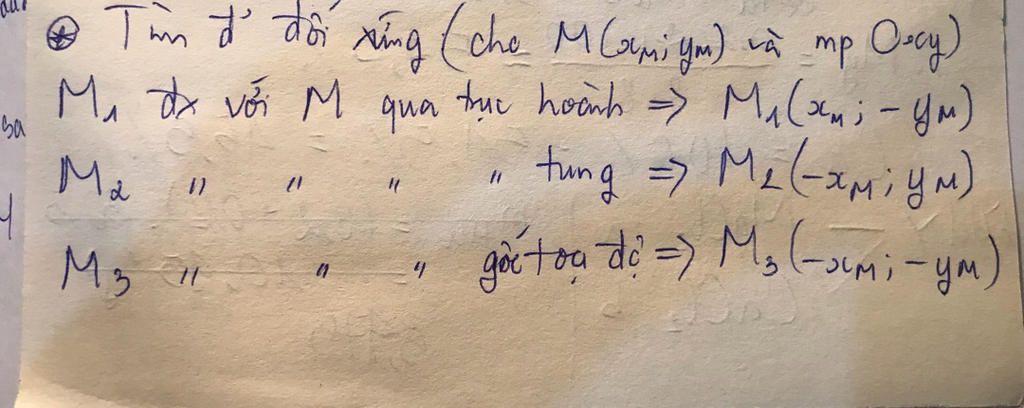 ⊛ Tìm đ' đối xứng (cho M(xM; yM) và mp Oxy)
M1 đx với M qua trục hoành => M1(xM; -yM)
M2 " " " " tung => M2(-xM; yM)
M3 " " " gốc toạ độ => M3(-xM; -yM)
sa